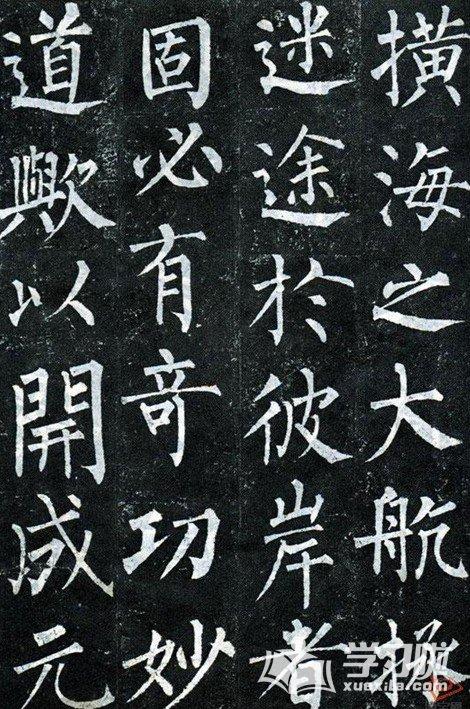 橫海之大航拯
迷途於彼岸者
固必有奇功妙
道歟以開成元
学习啦
xuexila.com